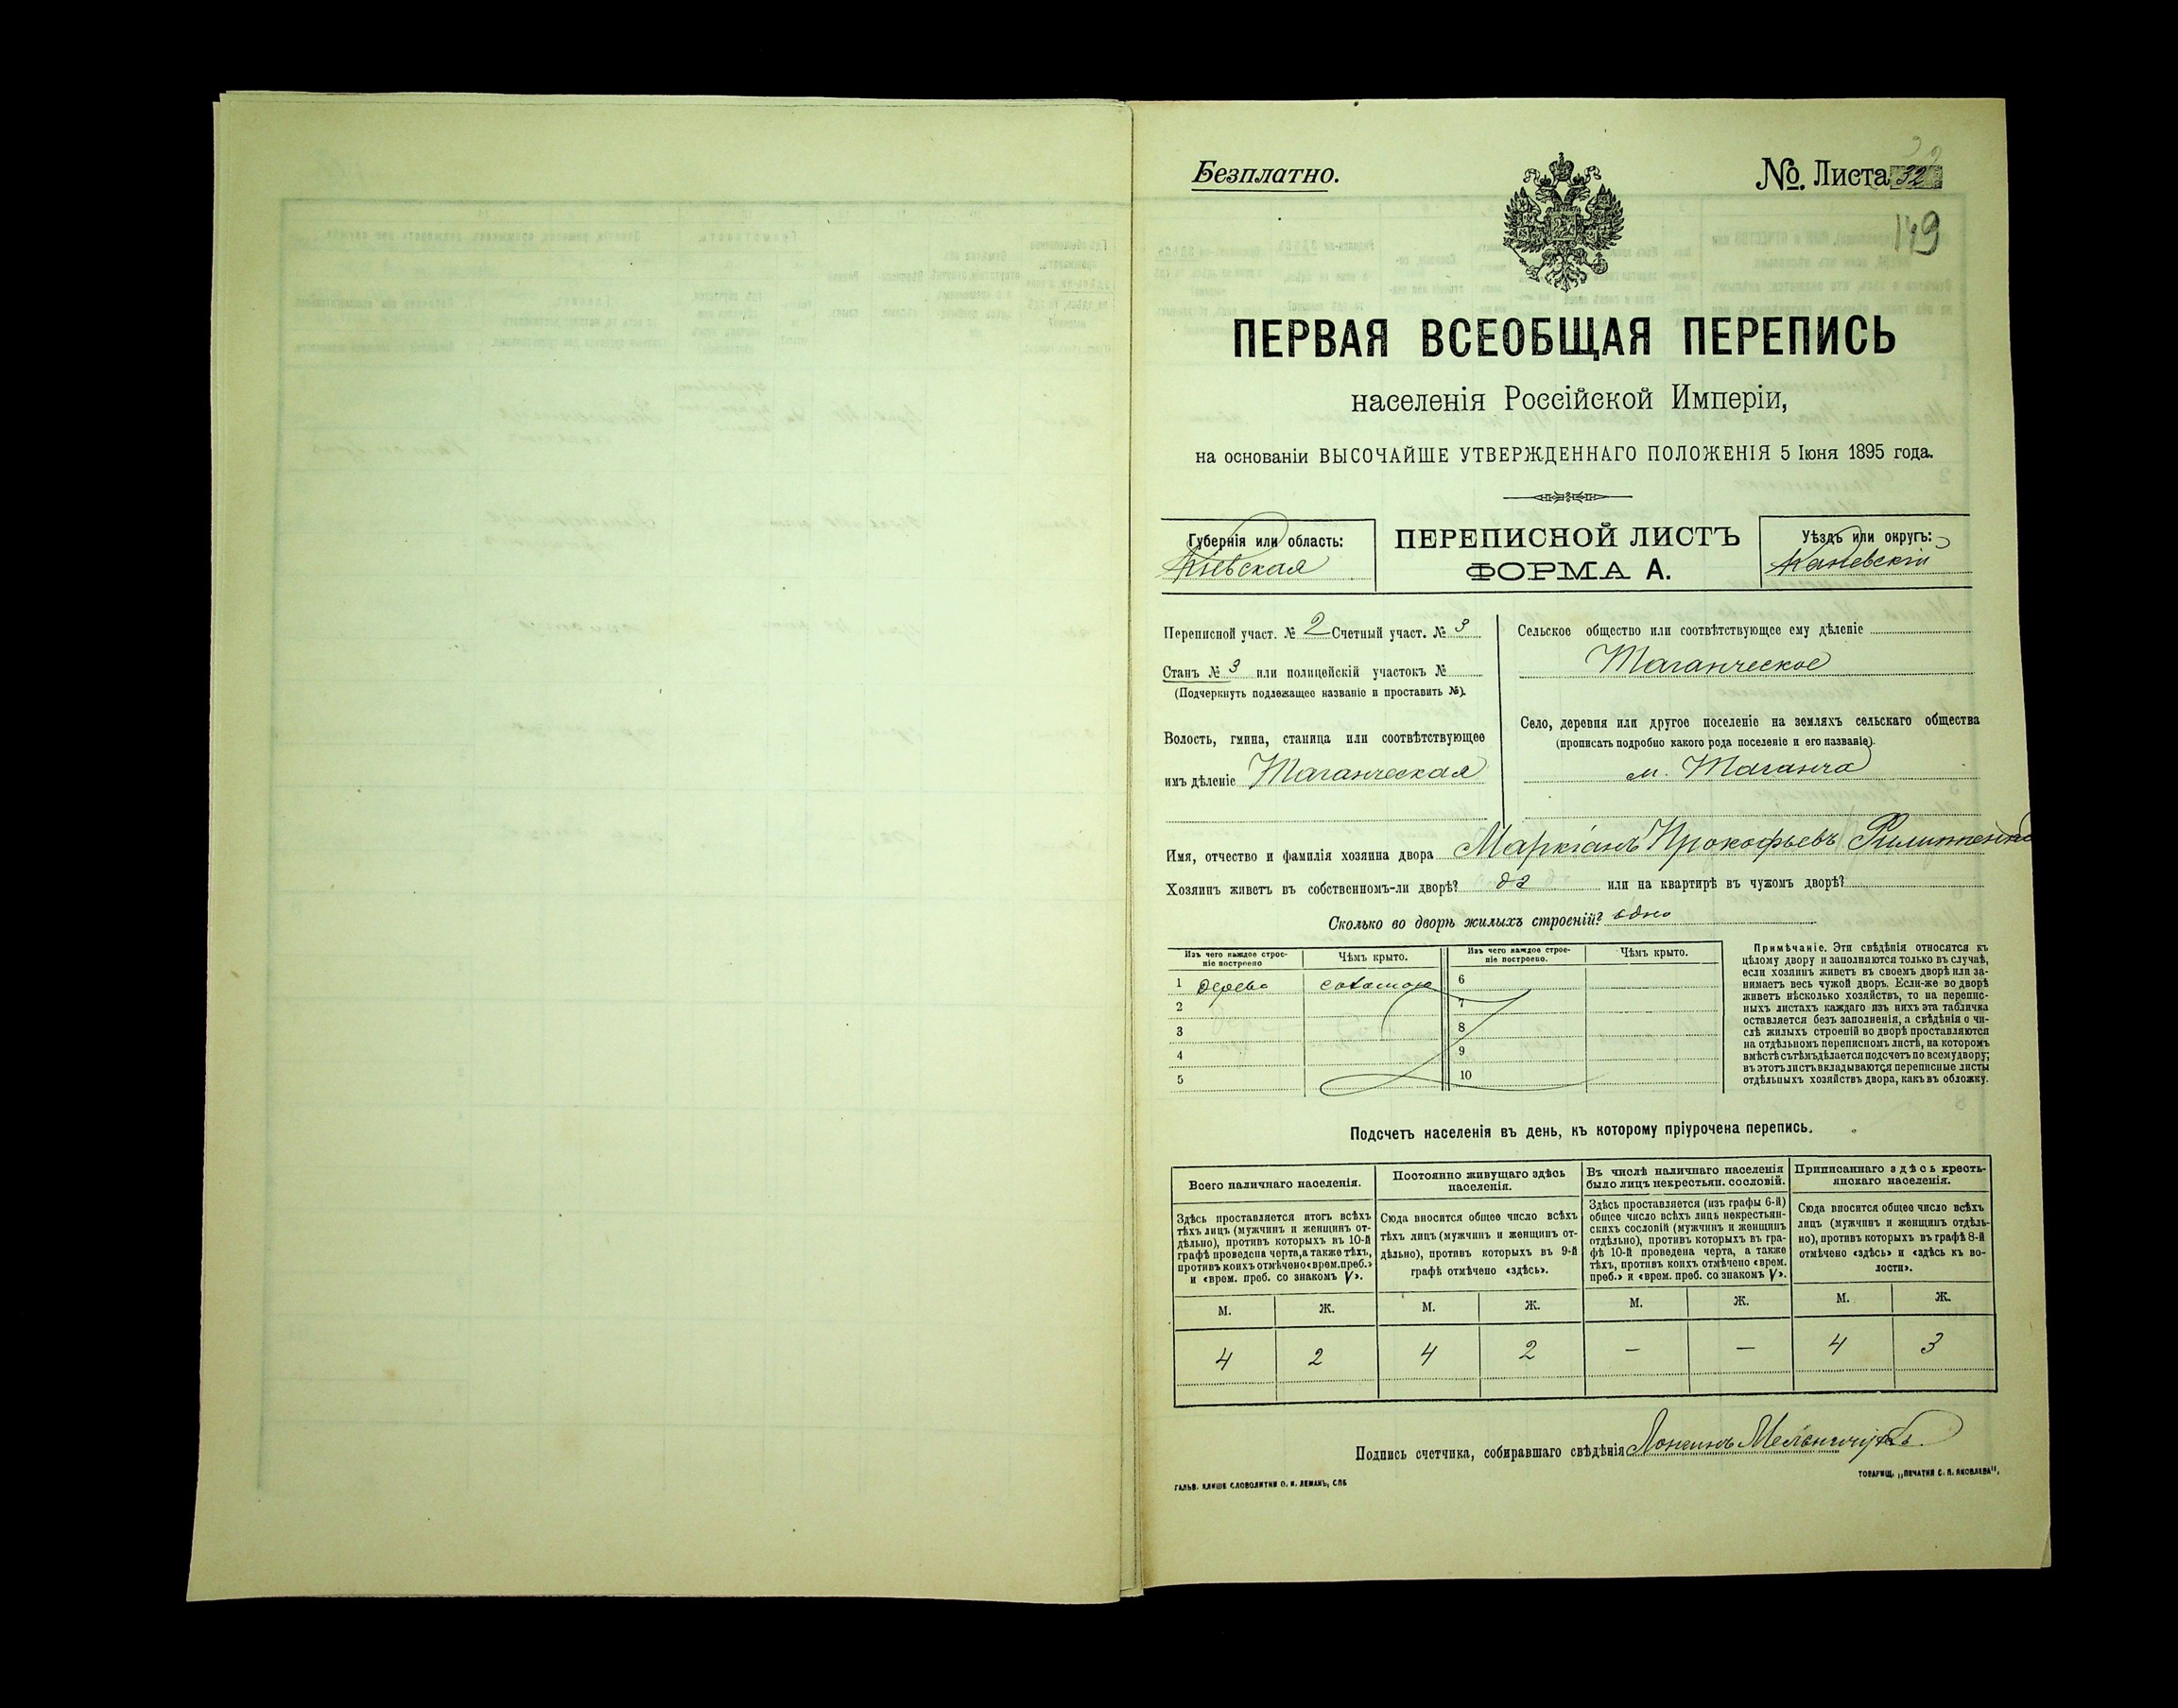 Безплатно.
№. Листа 32
149
ПЕРВАЯ ВСЕОБЩАЯ ПЕРЕПИСЬ
населенія Россійской Имперіи,
на основаніи ВЫСОЧАЙШЕ УТВЕРЖДЕННАГО ПОЛОЖЕНІЯ 5 Іюня 1895 года.
Губернія или область:
Кіевская
ПЕРЕПИСНОЙ ЛИСТЪ
ФОРМА А.
Уѣздъ или округъ:
Каневскій
Переписной участ. № 2 Счетный участ. № 3
Станъ № 3 или полицейскій участокъ №
(Подчеркнуть подлежащее названіе и проставить №).
Волость, гмина, станица или соотвѣтствующее
имъ дѣленіе Таганческая
Сельское общество или соотвѣтствующее ему дѣленіе
Таганческое
Село, деревня или другое поселеніе на земляхъ сельскаго общества
(прописать подробно какого рода поселеніе и его названіе).
м. Таганча
Имя, отчество и фамилія хозяина двора Маркіанъ Прокофьевъ Филипенко
Хозяинъ живетъ въ собственномъ-ли дворѣ? да или на квартирѣ въ чужомъ дворѣ?
Сколько во дворѣ жилыхъ строеній? одно
Изъ чего каждое строе-
ніе построено
Чѣмъ крыто.
Изъ чего каждое строе-
ніе построено.
Чѣмъ крыто.
1 дерева соломою 6
2 7
3 8
4 9
5 10
Примѣчаніе. Эти свѣдѣнія относятся къ
цѣлому двору и заполняются только въ случаѣ,
если хозяинъ живетъ въ своемъ дворѣ или за-
нимаетъ весь чужой дворъ. Если-же во дворѣ
живетъ нѣсколько хозяйствъ, то на перепис-
ныхъ листахъ каждаго изъ нихъ эта табличка
оставляется безъ заполненія, а свѣдѣнія о чи-
слѣ жилыхъ строеній во дворѣ проставляются
на отдѣльномъ переписномъ листѣ, на которомъ
вмѣстѣ съ тѣмъ дѣлается подсчетъ по всему двору;
въ этотъ листъ вкладываются переписные листы
отдѣльныхъ хозяйствъ двора, какъ въ обложку.
Подсчетъ населенія въ день, къ которому пріурочена перепись.
Всего наличнаго населенія.
Здѣсь проставляется итогъ всѣхъ
тѣхъ лицъ (мужчинъ и женщинъ от-
дѣльно), противъ которыхъ въ 10-й
графѣ проведена черта, а также тѣхъ,
противъ коихъ отмѣчено «врем. преб.»
и «врем. преб. со знакомъ V».
Постоянно живущаго здѣсь
населенія.
Сюда вносится общее число всѣхъ
тѣхъ лицъ (мужчинъ и женщинъ от-
дѣльно), противъ которыхъ въ 9-й
графѣ отмѣчено «здѣсь».
Въ числѣ наличнаго населенія
было лицъ некрестьян. сословій.
Здѣсь проставляется (изъ графы 6-й)
общее число всѣхъ лицъ некрестьян-
скихъ сословій (мужчинъ и женщинъ
отдѣльно), противъ которыхъ въ гра-
фѣ 10-й проведена черта, а также
тѣхъ, противъ коихъ отмѣчено «врем.
преб.» и «врем. преб. со знакомъ V».
Приписаннаго здѣсь кресть-
янскаго населенія.
Сюда вносится общее число всѣхъ
лицъ (мужчинъ и женщинъ отдѣль-
но), противъ которыхъ въ графѣ 8-й
отмѣчено «здѣсь» и «здѣсь къ во-
лости».
М. Ж. М. Ж. М. Ж. М. Ж.
4 2 4 2 — — 4 3
Подпись счетчика, собиравшаго свѣдѣнія Лонгинъ Мельничукъ
ГАЛЬВ. КЛИШЕ СЛОВОЛИТНИ О. И. ЛЕМАНЪ, СПБ
ТОВАРИЩ. „ПЕЧАТНИ С. П. ЯКОВЛЕВА".